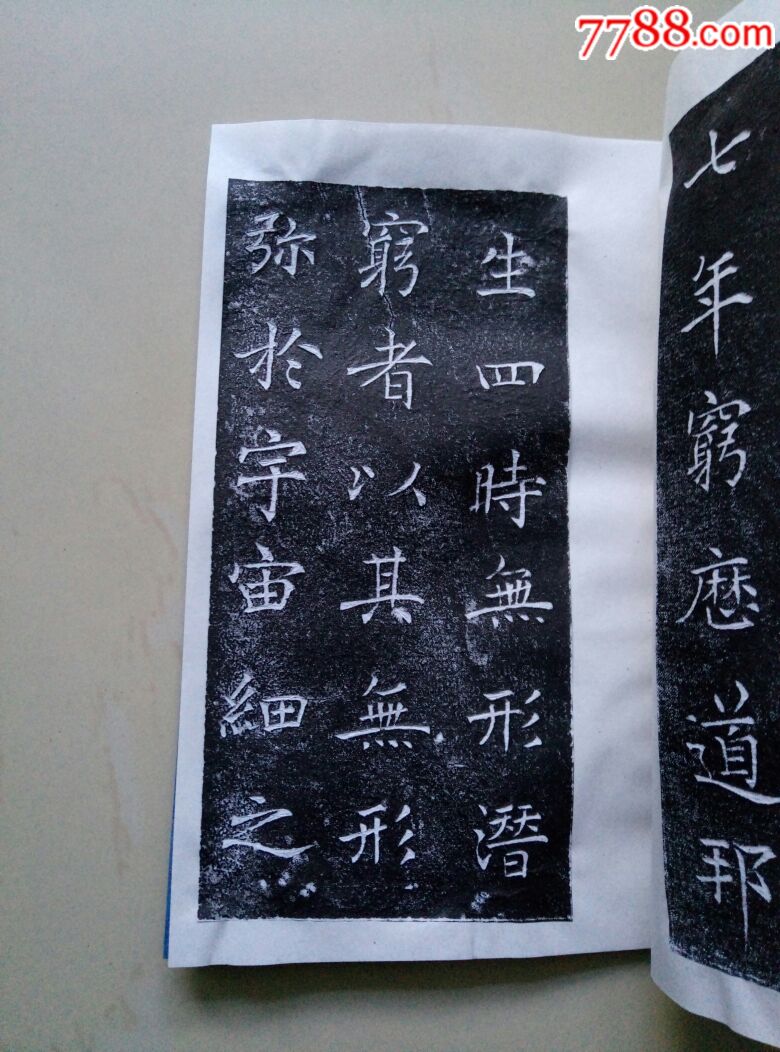 7788.com
七年窮歷道邦
生四時無形潛
窮者以其無形
弥於宇宙細之